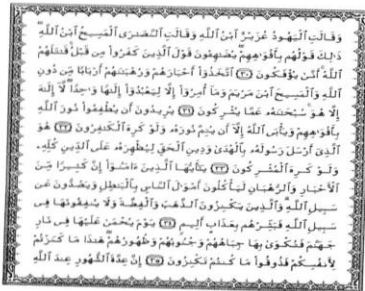 وَقَالَتِ الْيَهُودُ عُزَيْرٌ ابْنُ اللَّهِ وَقَالَتِ النَّصَٰرَى الْمَسِيحُ ابْنُ اللَّهِ
ذَٰلِكَ قَوْلُهُم بِأَفْوَٰهِهِمْ يُضَٰهِـُٔونَ قَوْلَ الَّذِينَ كَفَرُوا مِن قَبْلُ قَٰتَلَهُمُ
اللَّهُ أَنَّىٰ يُؤْفَكُونَ ﴿٣٠﴾ اتَّخَذُوا أَحْبَارَهُمْ وَرُهْبَٰنَهُمْ أَرْبَابًا مِّن دُونِ
اللَّهِ وَالْمَسِيحَ ابْنَ مَرْيَمَ وَمَا أُمِرُوا إِلَّا لِيَعْبُدُوا إِلَٰهًا وَٰحِدًا لَّا إِلَٰهَ
إِلَّا هُوَ سُبْحَٰنَهُ عَمَّا يُشْرِكُونَ ﴿٣١﴾ يُرِيدُونَ أَن يُطْفِـُٔوا نُورَ اللَّهِ
بِأَفْوَٰهِهِمْ وَيَأْبَى اللَّهُ إِلَّا أَن يُتِمَّ نُورَهُ وَلَوْ كَرِهَ الْكَٰفِرُونَ ﴿٣٢﴾ هُوَ
الَّذِي أَرْسَلَ رَسُولَهُ بِالْهُدَىٰ وَدِينِ الْحَقِّ لِيُظْهِرَهُ عَلَى الدِّينِ كُلِّهِ
وَلَوْ كَرِهَ الْمُشْرِكُونَ ﴿٣٣﴾ يَٰأَيُّهَا الَّذِينَ ءَامَنُوا إِنَّ كَثِيرًا مِّنَ
الْأَحْبَارِ وَالرُّهْبَانِ لَيَأْكُلُونَ أَمْوَٰلَ النَّاسِ بِالْبَٰطِلِ وَيَصُدُّونَ عَن
سَبِيلِ اللَّهِ وَالَّذِينَ يَكْنِزُونَ الذَّهَبَ وَالْفِضَّةَ وَلَا يُنفِقُونَهَا فِي
سَبِيلِ اللَّهِ فَبَشِّرْهُم بِعَذَابٍ أَلِيمٍ ﴿٣٤﴾ يَوْمَ يُحْمَىٰ عَلَيْهَا فِي نَارِ
جَهَنَّمَ فَتُكْوَىٰ بِهَا جِبَاهُهُمْ وَجُنُوبُهُمْ وَظُهُورُهُمْ هَٰذَا مَا كَنَزْتُمْ
لِأَنفُسِكُمْ فَذُوقُوا مَا كُنتُمْ تَكْنِزُونَ ﴿٣٥﴾ إِنَّ عِدَّةَ الشُّهُورِ عِندَ اللَّهِ